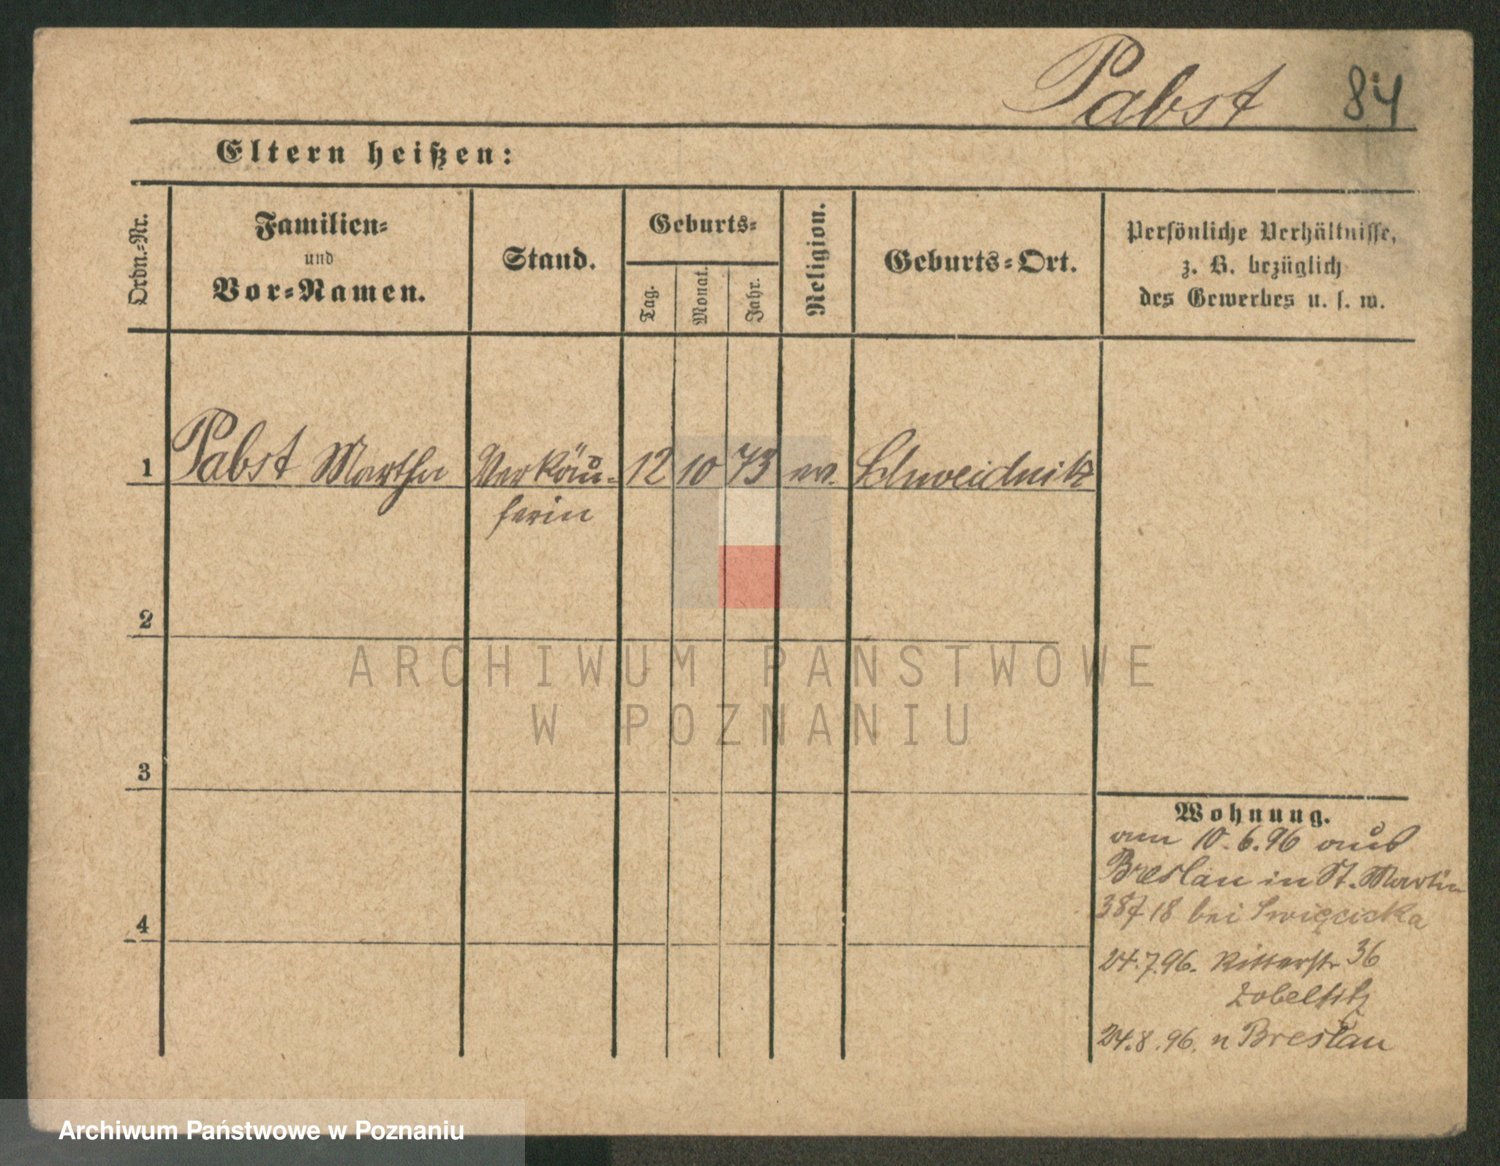 Pabst 84
Eltern heißen:
Ordn.-Nr.
Familien-
und
Vor-Namen.
Stand.
Geburts-
Tag.
Monat.
Jahr.
Religion.
Geburts-Ort.
Persönliche Verhältnisse,
z. B. bezüglich
des Gewerbes u. s. w.
1 Pabst Martha Verkäu- 12 10 73 ev. Schweidnitz
ferin
2
3
4
Wohnung.
am 10.6.96 aus
Breslau in St. Martin
18 bei Swięcicka
24.7.96. Ritterstr 36
Zobeltitz
24.8.96. n Breslau
ARCHIWUM PAŃSTWOWE
W POZNANIU
Archiwum Państwowe w Poznaniu